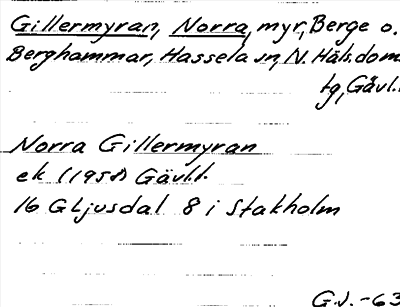 Gillermyran, Norra, myr, Berge o.
Berghammar, Hassela sn, N. Häls. dom.
tg, Gävl.l.
Norra Gillermyran
ek (1958) Gävl.l.
16 G Ljusdal 8 i Stakholm
G.J. -63